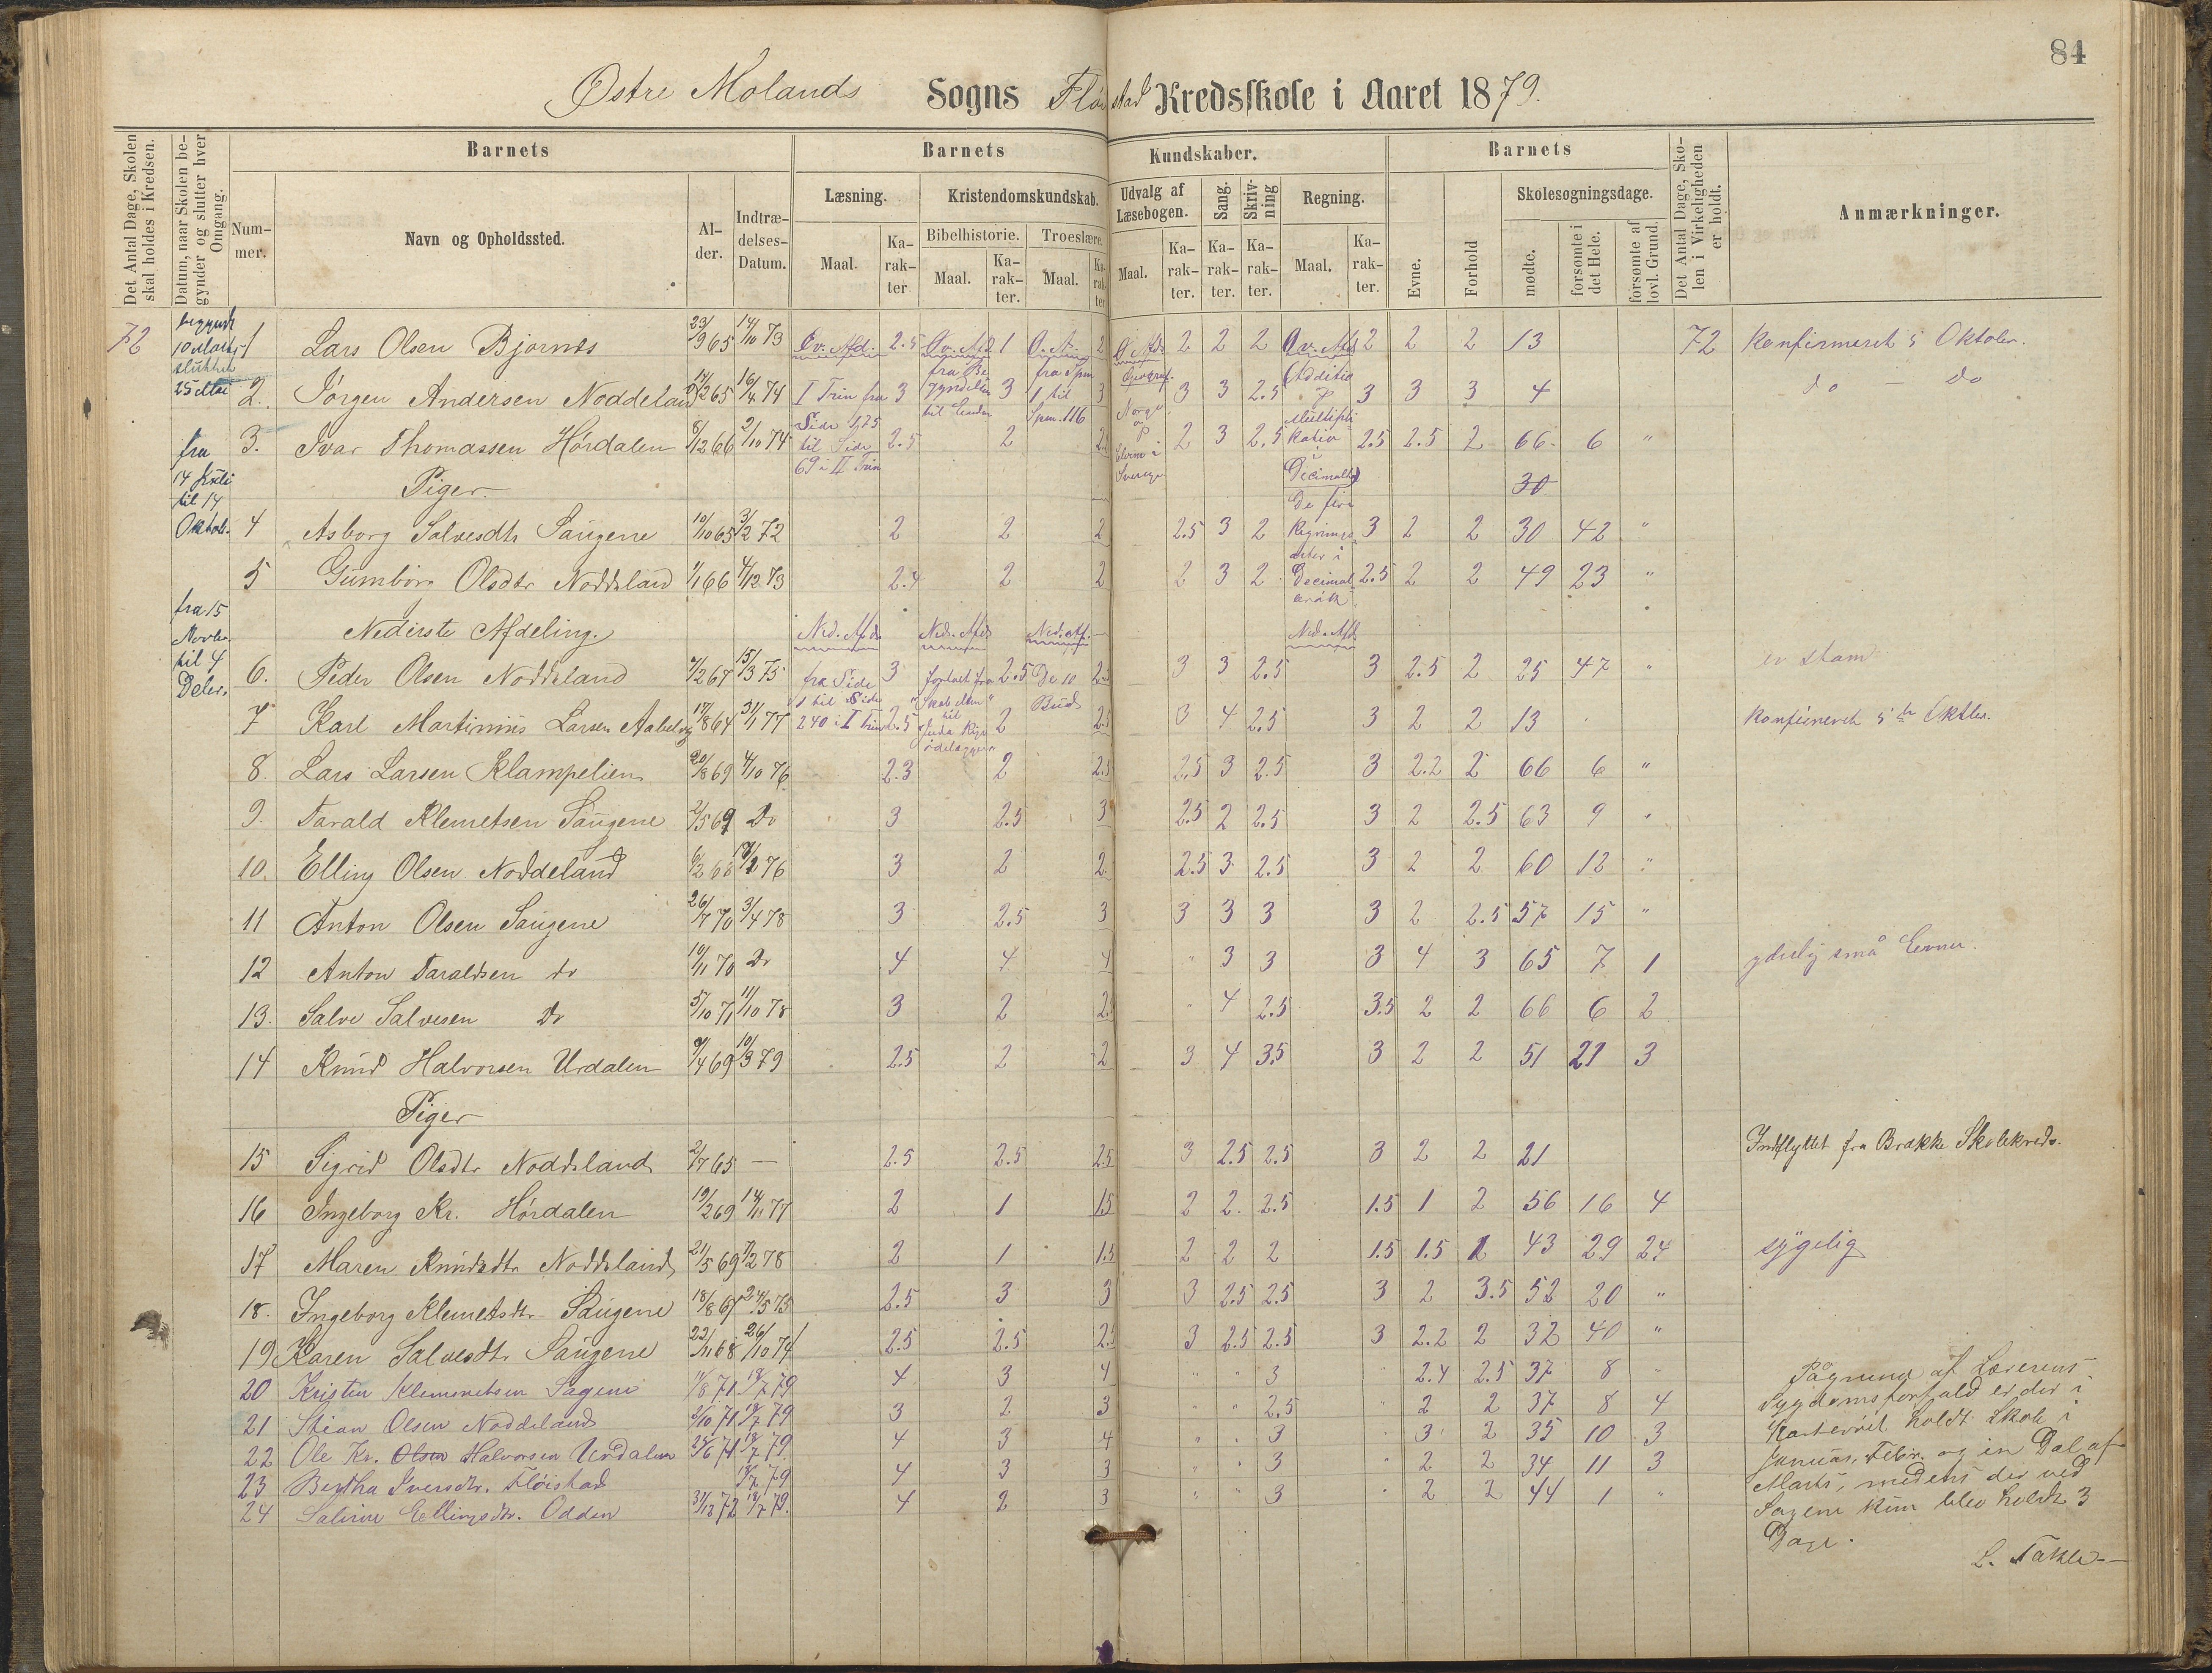 84
Østre Molands Sogns Fløistad Kredsskole i Aaret 1879.
Det Antal Dage, Skolen skal holdes i Kredsen.
Datum, naar Skolen begynder og slutter hver Omgang.
Barnets
Nummer.
Navn og Opholdssted.
Alder.
Indtrædelses-Datum.
Barnets Kundskaber.
Læsning.
Maal.
Karakter
Kristendomskundskab.
Bibelhistorie.
Maal.
Karakter.
Troeslære.
Maal.
Karakter
Udvalg af Læsebogen.
Maal.
Karakter.
Sang.
Karakter.
Skrivning
Karakter.
Regning.
Maal.
Karakter.
Barnets
Evne.
Forhold
Skolesøgningsdage.
mødte.
forsømte i det Hele.
forsømte af lovl. Grund.
Det Antal Dage, Skolen i Virkeligheden er holdt.
Anmærkninger.
72
begyndt
10 Marts
sluttet
25 Mai
fra
14 Juli
til 14
Oktob.
fra 15
Novbr.
til 4
Decbr.
1 Lars Olsen Bjornes 23/9 65 14/10 73 Øv. Afd. 2.5 Øv. Afd. 1 Ø. Af. 2 Ø Afd. 2 2 2 Øv. Afd. 2 2 2 13 72 Konfirmeret 5 Oktober.
2. Jørgen Andersen Noddeland 265 16/4 74 I Trin fra 3 fra Begyndelsen til Enden 3 fra Spm 1 til Spm. 116 3 Geograf. Norge 3 3 2.5 Additio 3 3 3 4 do — do
3. Ivar Thomassen Hørdalen 8/12 66 2/10 74 Side 125 til Side 69 i II Trin 2.5 2 2.5 Sverige 2 3 2.5 Multiplikation i Decimalbrøk 2.5 2.5 2 66 6 "
Piger. 30
4 Asborg Salvesdtr Saugene 10/10 65 3/2 72 2 2 2 2.5 3 2 De fire Regningsarter i 3 2 2 30 42 "
5 Gumbør Olsdtr Noddeland 1/1 66 4/12 73 2.4 2 2 2 3 2 Decimalbrøk 2.5 2 2 49 23 "
Nederste Afdeling. Ned. Afd. Ned. Afd. Ned. Af. Ned. Afd.
6. Peder Olsen Noddeland 7/2 67 15/3 75 fra Side 3 fortalt fra 2.5 De 10 2.5 3 3 2.5 3 2.5 2 25 47 " er stam
7 Karl Martinius Larsen Aabelvig 17/8 64 31/1 77 1 til Side 240 i I Trin 2.5 "Skabelsen" til Juda Rige ødelægges 2 Bud 2.5 3 4 2.5 3 2 2 13 Konfirmeret 5te Oktbr.
8. Lars Larsen Klampelien 20/8 69 4/10 76 2.3 2 2.5 2.5 3 2.5 3 2.2 2 66 6 "
9. Tarald Klemetsen Saugene 2/5 69 Do 3 2.5 3 2.5 2 2.5 3 2 2.5 63 9 "
10. Elling Olsen Noddeland 6/2 68 18/2 76 3 2 2. 2.5 3 2.5 3 2 2 60 12 "
11 Anton Olsen Saugene 26/7 70 3/4 78 3 2.5 3 3 3 3 3 2 2.5 57 15 "
12 Anton Taraldsen do 10/11 70 Do 4 4 4 " 3 3 3 4 3 65 7 1 yderlig små Evner.
13. Salve Salvesen Do 5/10 71 11/10 78 3 2 2.5 " 4 2.5 3.5 2 2 66 6 2
14 Knud Halvorsen Urdalen 9/4 69 10/3 79 2.5 2 2 3 4 3.5 3 2 2 51 21 3
Piger
15 Sigrid Olsdtr Noddeland 2/7 65 — 2.5 2.5 2.5 3 2.5 2.5 3 2 2 21 Indflyttet fra Brække Skolekreds.
16 Ingeborg Kr. Hørdalen 19/2 69 14/11 77 2 1 1.5 2 2. 2.5 1.5 1 2 56 16 4
17 Maren Knudsdtr Noddeland 21/5 69 7/2 78 2 1 1.5 2 2 2 1.5 1.5 1 43 29 24 sygelig
18. Ingeborg Klemetsdtr Saugene 18/8 67 24/5 75 2.5 3 3 3 2.5 2.5 3 2 3.5 52 20 "
19 Karen Salvesdtr Saugene 22/11 68 26/10 74 2.5 2.5 2.5 3 2.5 2.5 3 2.2 2 32 40 "
20 Kristen Klemmetsen Sagene 11/8 71 18/7 79 4 3 4 " " 3 " 2.4 2.5 37 8 "
21 Stian Olsen Noddeland 2/10 71 18/7 79 3 2 3 " " 2.5 " 2 2 37 8 4
22 Ole Kr. Olsen Halvorsen Urdalen 25/6 71 18/7 79. 4 3 4 " " 3 " 3 2 35 10 3
23 Bertha Iversdtr. Fløistad 18/7 79 4 3 3 " " 3 2 2 34 11 3
24 Saline Ellingsdtr. Odden 31/12 72 18/7 79. 4 2 3 " " 3 " 2 2 44 1 "
Pågrund af Lærerens
Sygdomsforfald er der i
holdt Skole i
Januar, Febr. og en Del af
Marts, medens der ved
Sagene kun blev holdt 3
Dage.
L. Takle